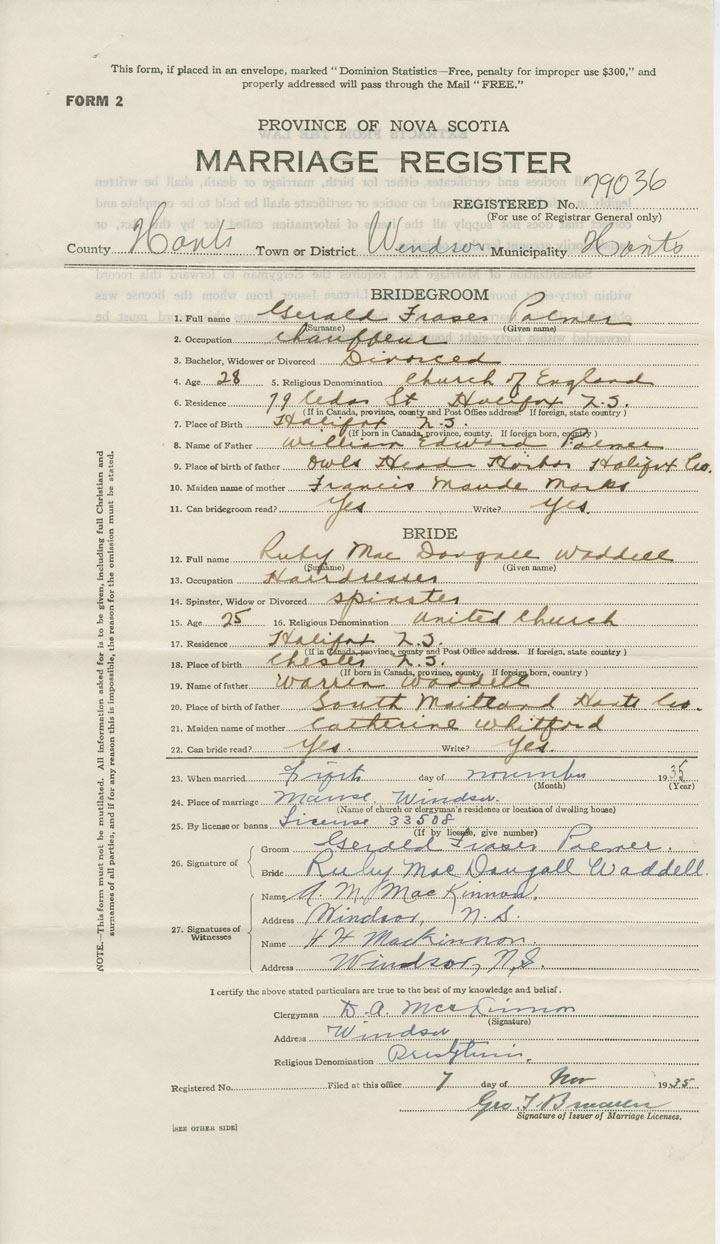 This form, if placed in an envelope, marked "Dominion Statistics—Free, penalty for improper use $300," and
properly addressed will pass through the Mail "FREE."
FORM 2
PROVINCE OF NOVA SCOTIA
MARRIAGE REGISTER
REGISTERED No. 79036
(For use of Registrar General only)
County Hants Town or District Windsor Municipality Hants
BRIDEGROOM
1. Full name Gerald Fraser Palmer
(Surname) (Given name)
2. Occupation Chauffeur
3. Bachelor, Widower or Divorced Divorced
4. Age 28 5. Religious Denomination Church of England
6. Residence 79 Cedar St Halifax N.S.
(If in Canada, province, county and Post Office address. If foreign, state country)
7. Place of Birth Halifax N.S.
(If born in Canada, province, county. If foreign born, country)
8. Name of Father William Edward Palmer
9. Place of birth of father Owls Head Harbor Halifax Co.
10. Maiden name of mother Francis Maude Marks
11. Can bridegroom read? Yes Write? Yes.
BRIDE
12. Full name Ruby Mac Dougall Waddell
(Surname) (Given name)
13. Occupation Hairdresser
14. Spinster, Widow or Divorced Spinster
15. Age 25 16. Religious Denomination United Church
17. Residence Halifax N.S.
(If in Canada, province, county and Post Office address. If foreign, state country)
18. Place of birth Chester N.S.
(If born in Canada, province, county. If foreign born, country)
19. Name of father Warren Waddell
20. Place of birth of father South Maitland Hants Co.
21. Maiden name of mother Catherine Whitford
22. Can bride read? Yes. Write? Yes.
23. When married Fifth day of November 1935
(Month) (Year)
24. Place of marriage Manse, Windsor.
(Name of church or clergyman's residence or location of dwelling house)
25. By license or banns License 33508
(If by license, give number)
26. Signature of
Groom Gerald Fraser Palmer.
Bride Ruby Mac Dougall Waddell.
27. Signatures of Witnesses
Name A. M. MacKinnon.
Address Windsor, N.S.
Name H H Mackinnon.
Address Windsor, N.S.
NOTE.—This form must not be mutilated. All information asked for is to be given, including full Christian and
surnames of all parties, and if for any reason this is impossible, the reason for the omission must be stated.
I certify the above stated particulars are true to the best of my knowledge and belief.
Clergyman D. A. MacKinnon
(Signature)
Address Windsor
Religious Denomination Presbyterian.
Registered No. Filed at this office 7 day of Nov 1935
Geo. T.
Signature of Issuer of Marriage Licenses.
[SEE OTHER SIDE]